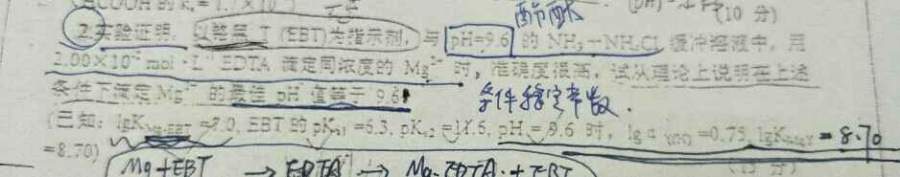 HCOOH 的 K
酚酞 (10 分)
2.实验证明:以铬黑 T (EBT)为指示剂,与 pH=9.6 的 NH₃-NH₄Cl 缓冲溶液中,用
2.00×10⁻² mol·L⁻¹ EDTA 滴定同浓度的 Mg²⁺ 时,准确度很高,试从理论上说明在上述
条件下滴定 Mg²⁺ 的最佳 pH 值等于 9.6 条件稳定常数.
(已知:lgK Mg-EBT =7.0, EBT 的 pKₐ₁=6.3, pKₐ₂=11.6, pH = 9.6 时, lgα Y(H) =0.75, lgK MgY =8.70
=8.70) (15 分)
Mg+EBT → EDTA → Mg-EDTA + EBT